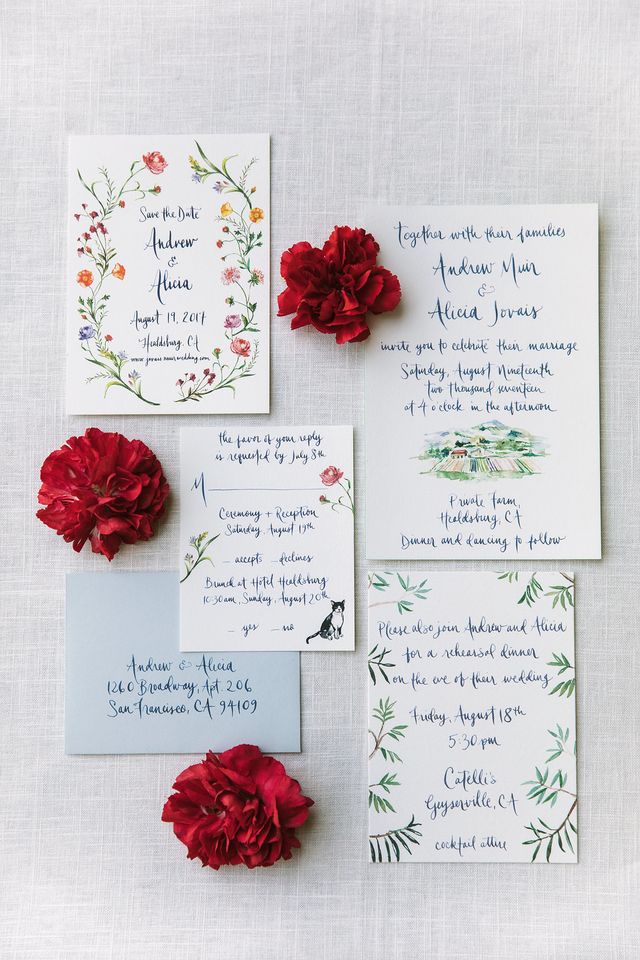 Save the Date
Andrew
&
Alicia
August 19, 2017
Healdsburg, CA
www.jovais-muirwedding.com
together with their families
Andrew Muir
&
Alicia Jovais
invite you to celebrate their marriage
Saturday, August Nineteenth
two thousand seventeen
at 4 o'clock in the afternoon
Private Farm,
Healdsburg, CA
Dinner and dancing to follow
the favor of your reply
is requested by July 8th
M
Ceremony + Reception
Saturday, August 19th
_ accepts _ declines
Brunch at Hotel Healdsburg
10:30am, Sunday, August 20th
_ yes _ no
Andrew & Alicia
1260 Broadway, Apt. 206
San Francisco, CA 94109
Please also join Andrew and Alicia
for a rehearsal dinner
on the eve of their wedding
Friday, August 18th
5:30 pm
Catelli's
Geyserville, CA
cocktail attire